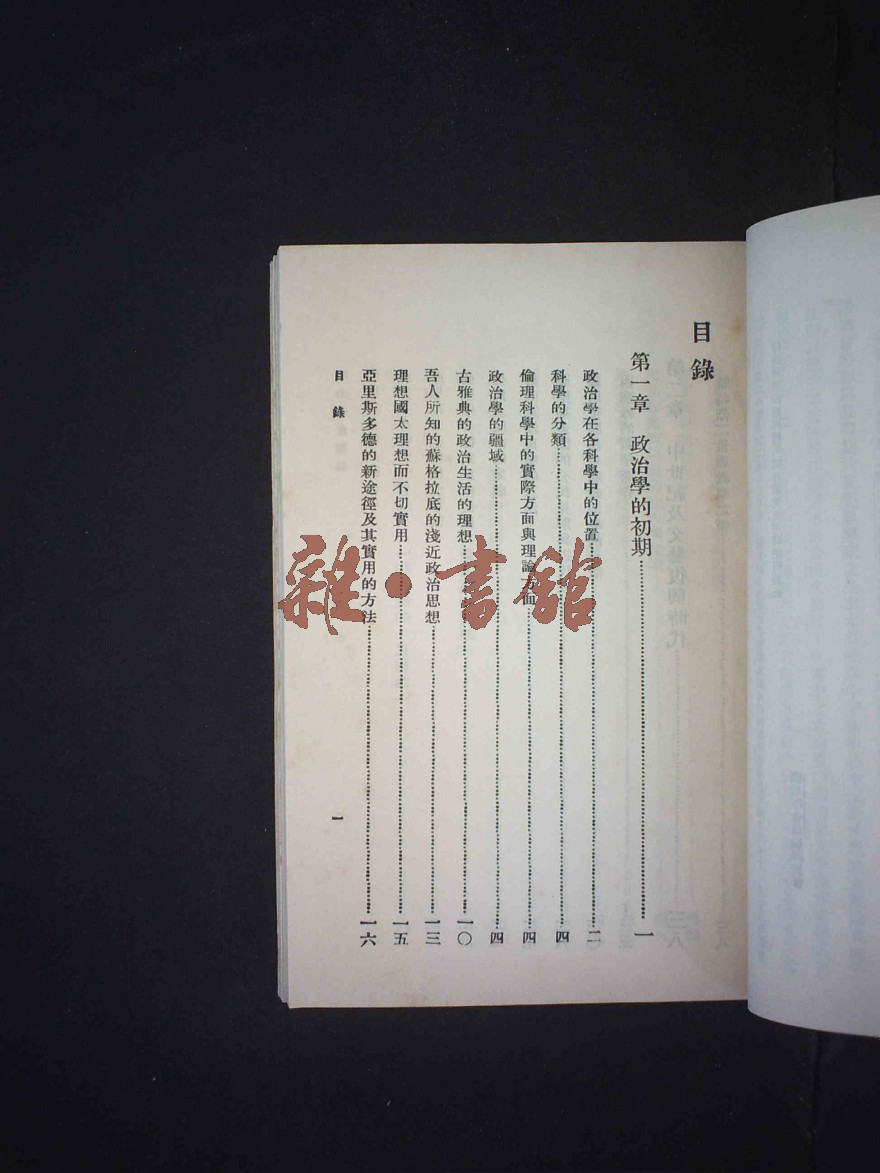 目錄
第一章　政治學的初期……一
政治學在各科學中的位置……二
科學的分類……四
倫理科學中的實際方面與理論方面……四
政治學的疆域……四
古雅典的政治生活的理想……一〇
吾人所知的蘇格拉底的淺近政治思想……一三
理想國太理想而不切實用……一五
亞里斯多德的新途徑及其實用的方法……一六
目錄
一
雜·書館